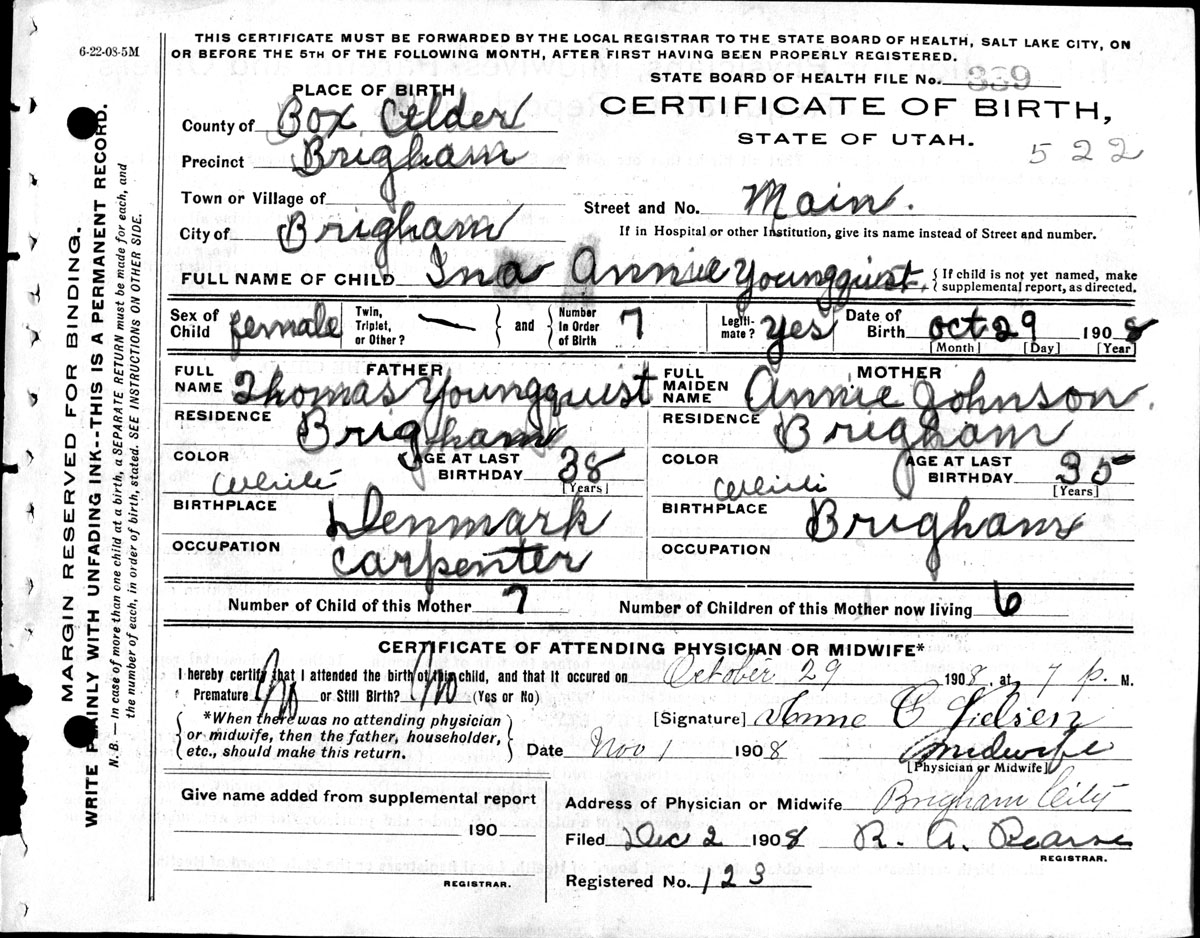 6-22-08-5M
THIS CERTIFICATE MUST BE FORWARDED BY THE LOCAL REGISTRAR TO THE STATE BOARD OF HEALTH, SALT LAKE CITY, ON
OR BEFORE THE 5TH OF THE FOLLOWING MONTH, AFTER FIRST HAVING BEEN PROPERLY REGISTERED.
STATE BOARD OF HEALTH FILE No. 339
PLACE OF BIRTH
CERTIFICATE OF BIRTH,
STATE OF UTAH.
522
County of Box Elder
Precinct Brigham
Town or Village of
City of Brigham
Street and No. Main.
If in Hospital or other Institution, give its name instead of Street and number.
FULL NAME OF CHILD Ina Annie Youngquist. { If child is not yet named, make supplemental report, as directed.
Sex of Child female Twin, Triplet, or Other? — } and { Number In Order of Birth 7 Legiti-mate? yes Date of Birth Oct 29 1908
[Month] [Day] [Year]
FATHER
FULL NAME Thomas Youngquist
RESIDENCE Brigham
COLOR White AGE AT LAST BIRTHDAY 38
[Years]
BIRTHPLACE Denmark
OCCUPATION Carpenter
MOTHER
FULL MAIDEN NAME Annie Johnson.
RESIDENCE Brigham
COLOR White AGE AT LAST BIRTHDAY 35
[Years]
BIRTHPLACE Brigham
OCCUPATION
Number of Child of this Mother 7 Number of Children of this Mother now living 6
CERTIFICATE OF ATTENDING PHYSICIAN OR MIDWIFE*
I hereby certify that I attended the birth of this child, and that it occured on October 29 1908, at 7 p. M.
Premature No or Still Birth? No (Yes or No)
{ *When there was no attending physician
or midwife, then the father, householder,
etc., should make this return. }
[Signature] Anne C Nielsen
Date Nov 1 1908 midwife
[Physician or Midwife]
Give name added from supplemental report
190
REGISTRAR.
Address of Physician or Midwife Brigham City
Filed Dec 2 1908 R. A. Pearse
REGISTRAR.
Registered No. 123
MARGIN RESERVED FOR BINDING.
WRITE PLAINLY WITH UNFADING INK--THIS IS A PERMANENT RECORD.
N. B. — In case of more than one child at a birth, a SEPARATE RETURN must be made for each, and
the number of each, in order of birth, stated. SEE INSTRUCTIONS ON OTHER SIDE.